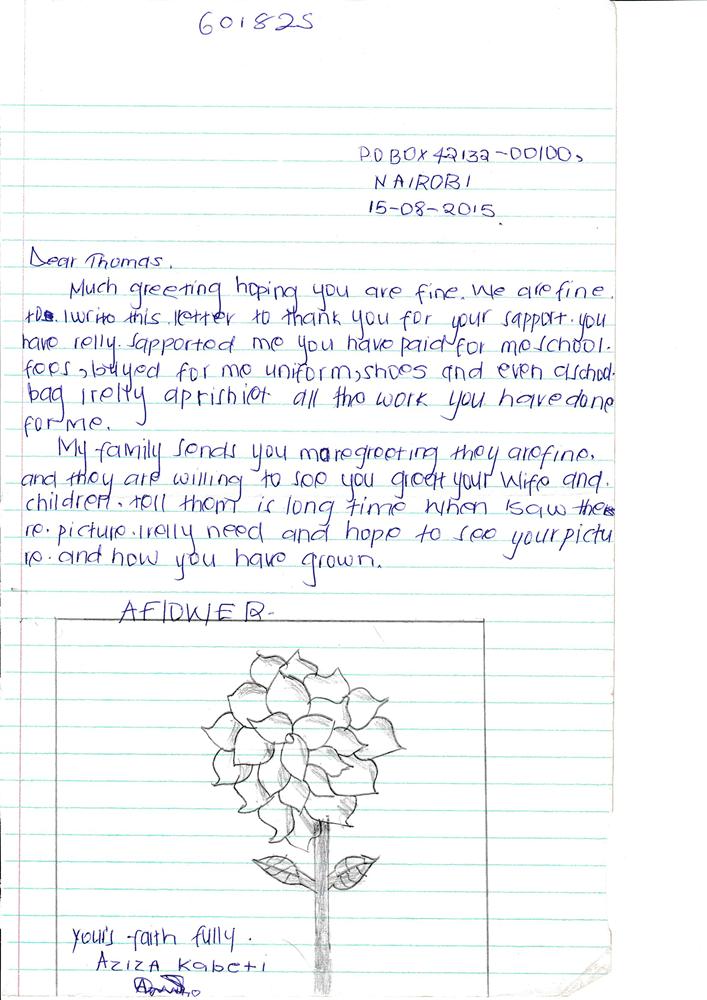 601825
P.O BOX 42132-00100,
NAIROBI
15-08-2015.
Dear Thomas.
Much greeting hoping you are fine. We are fine.
I write this letter to thank you for your sapport. you
have relly sapported me you have paid for me school.
fees, buyed for me uniform, shoes and even a school
bag I relly aprishiet all the work you have done
for me.
My family sends you more greeting they are fine.
and they are willing to see you greet your wife and.
children. tell them is long time when I saw the
re. picture. I relly need and hope to see your pictu
re. and how you have grown.
A FlOWER.
your's faith fully.
AZIZA Kabeti